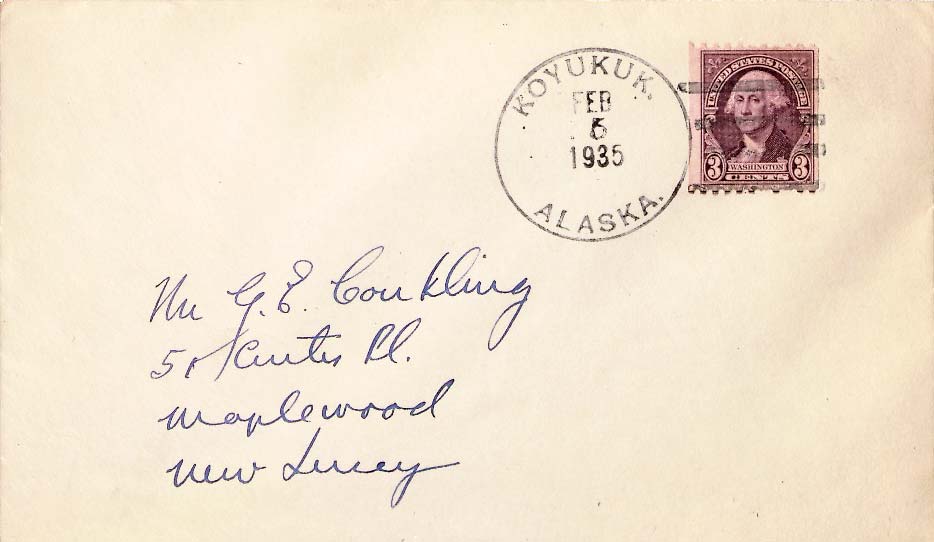 KOYUKUK,
FEB
5
1935
ALASKA.
UNITED STATES POSTAGE
3 WASHINGTON 3
CENTS
Mr G. E. Conkling
Pl.
Maplewood
New Jersey